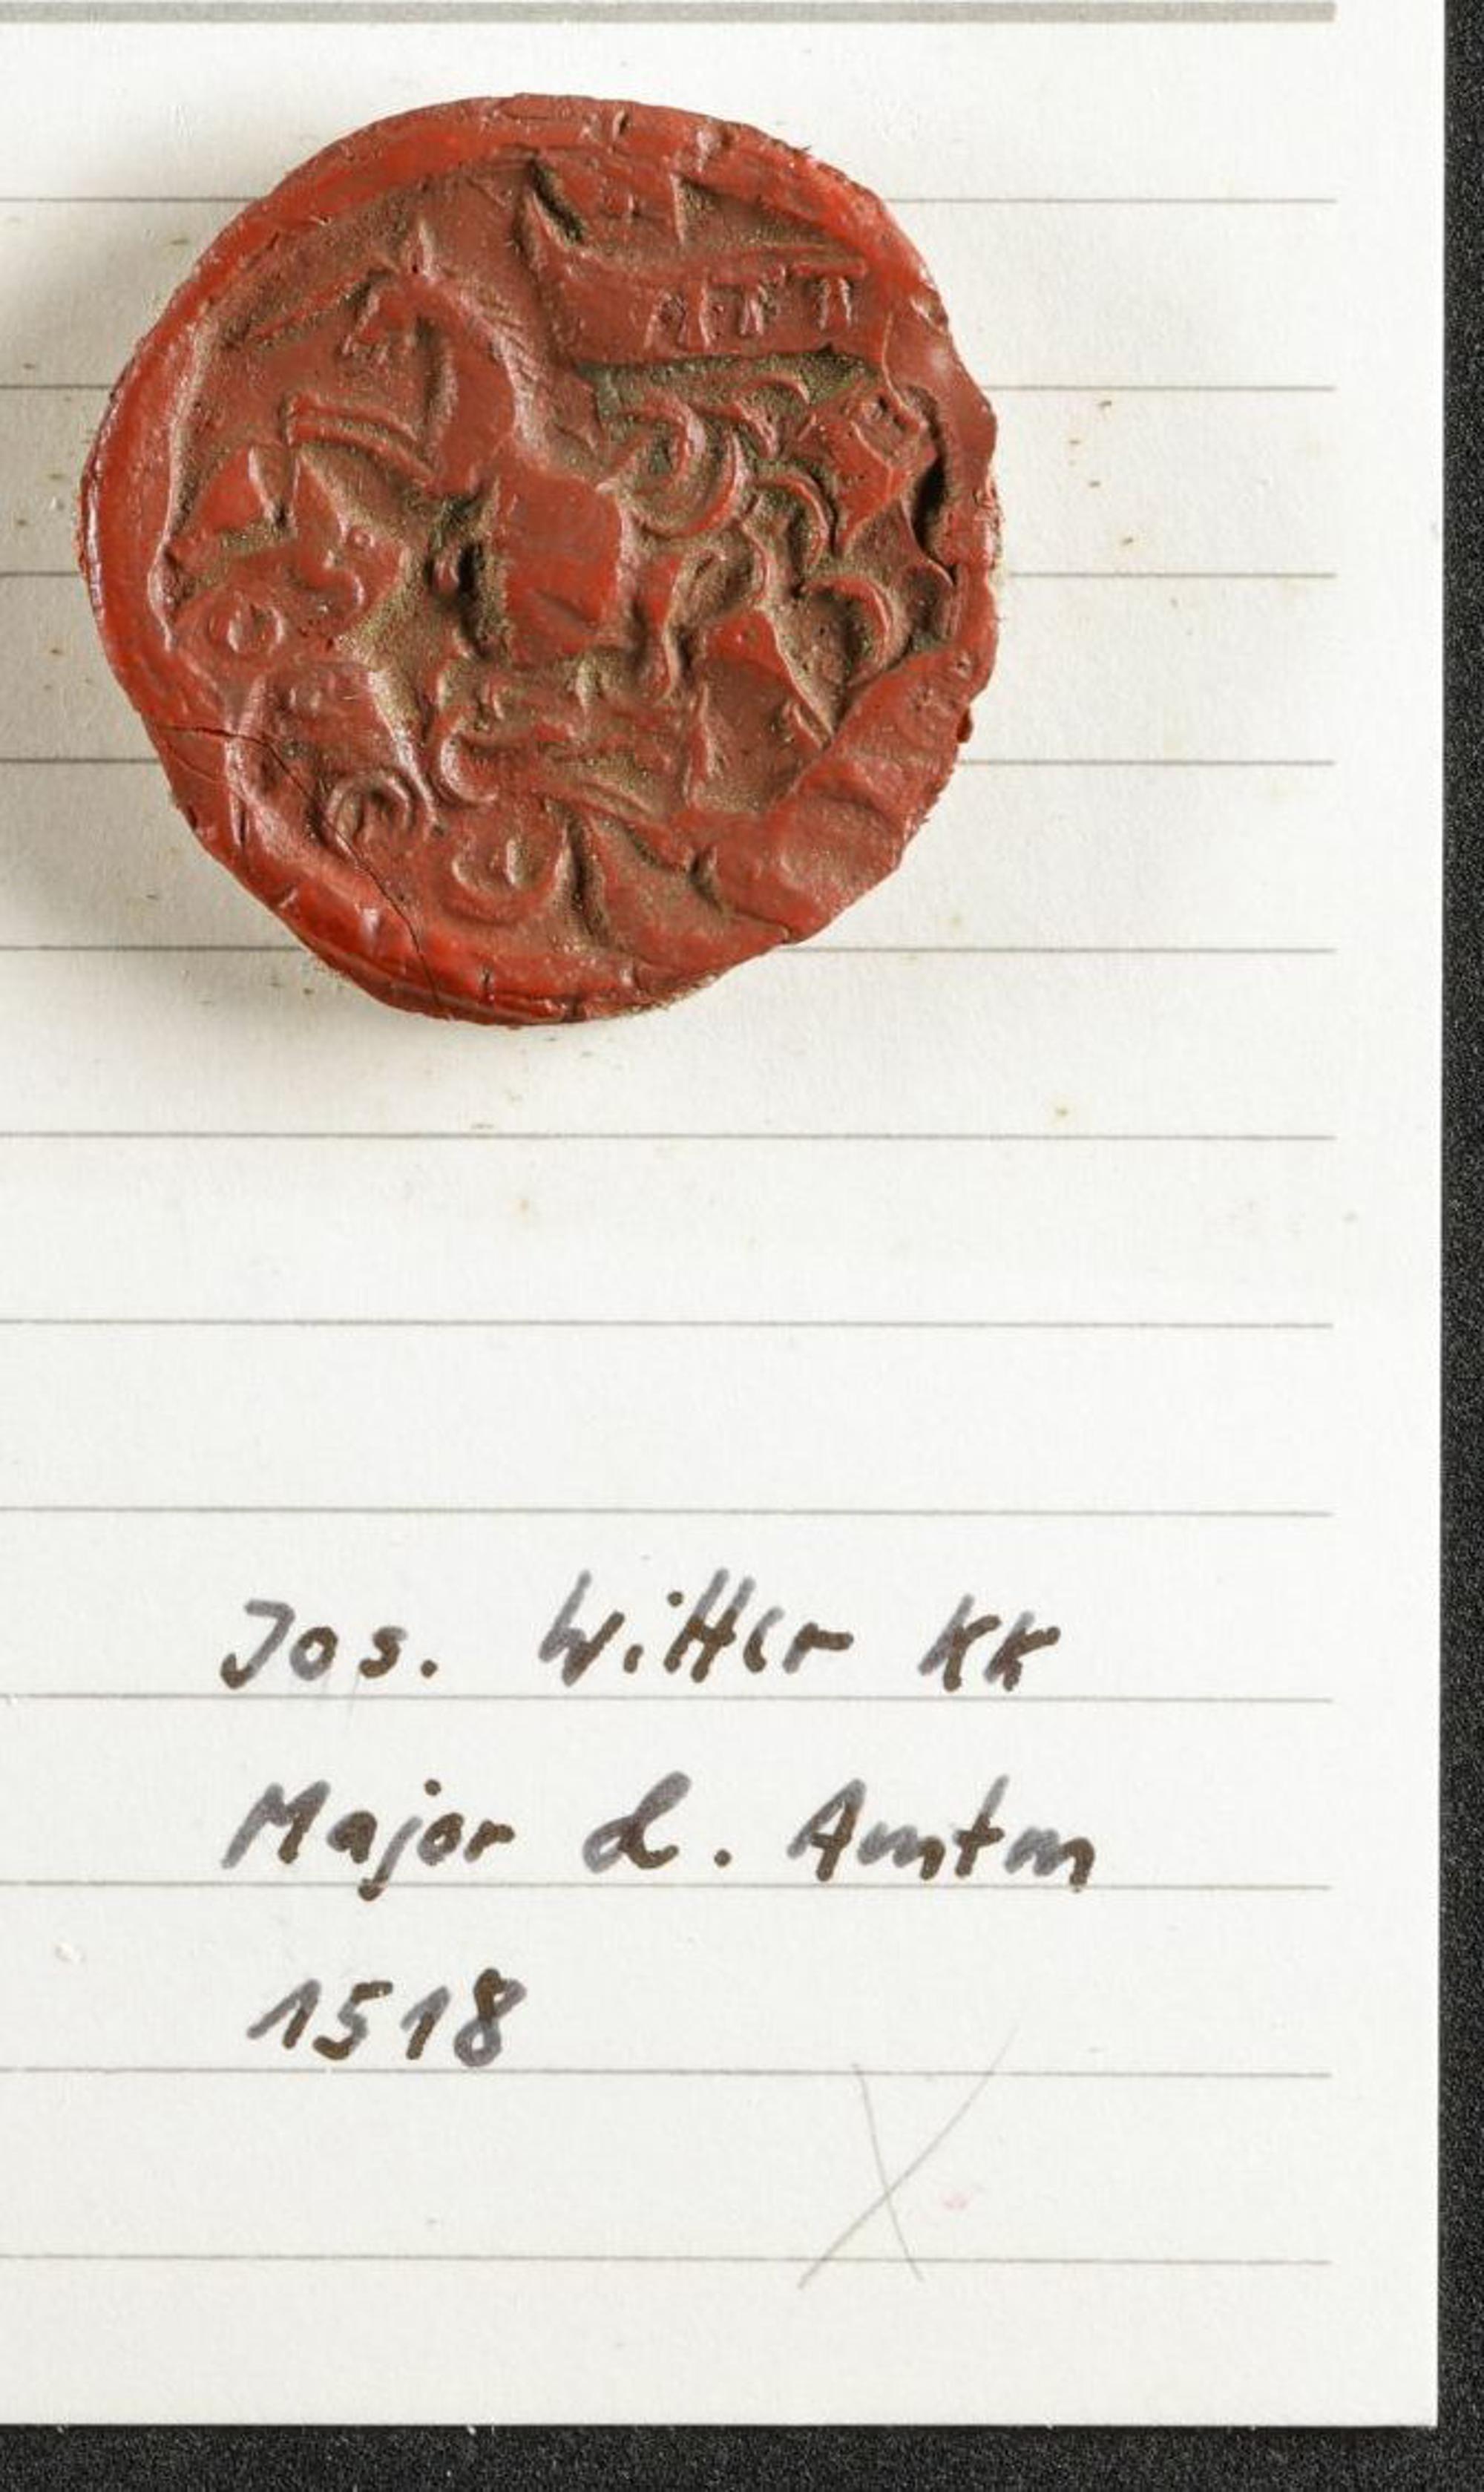 Jos. Witter KK
Major L. Amtm
1518